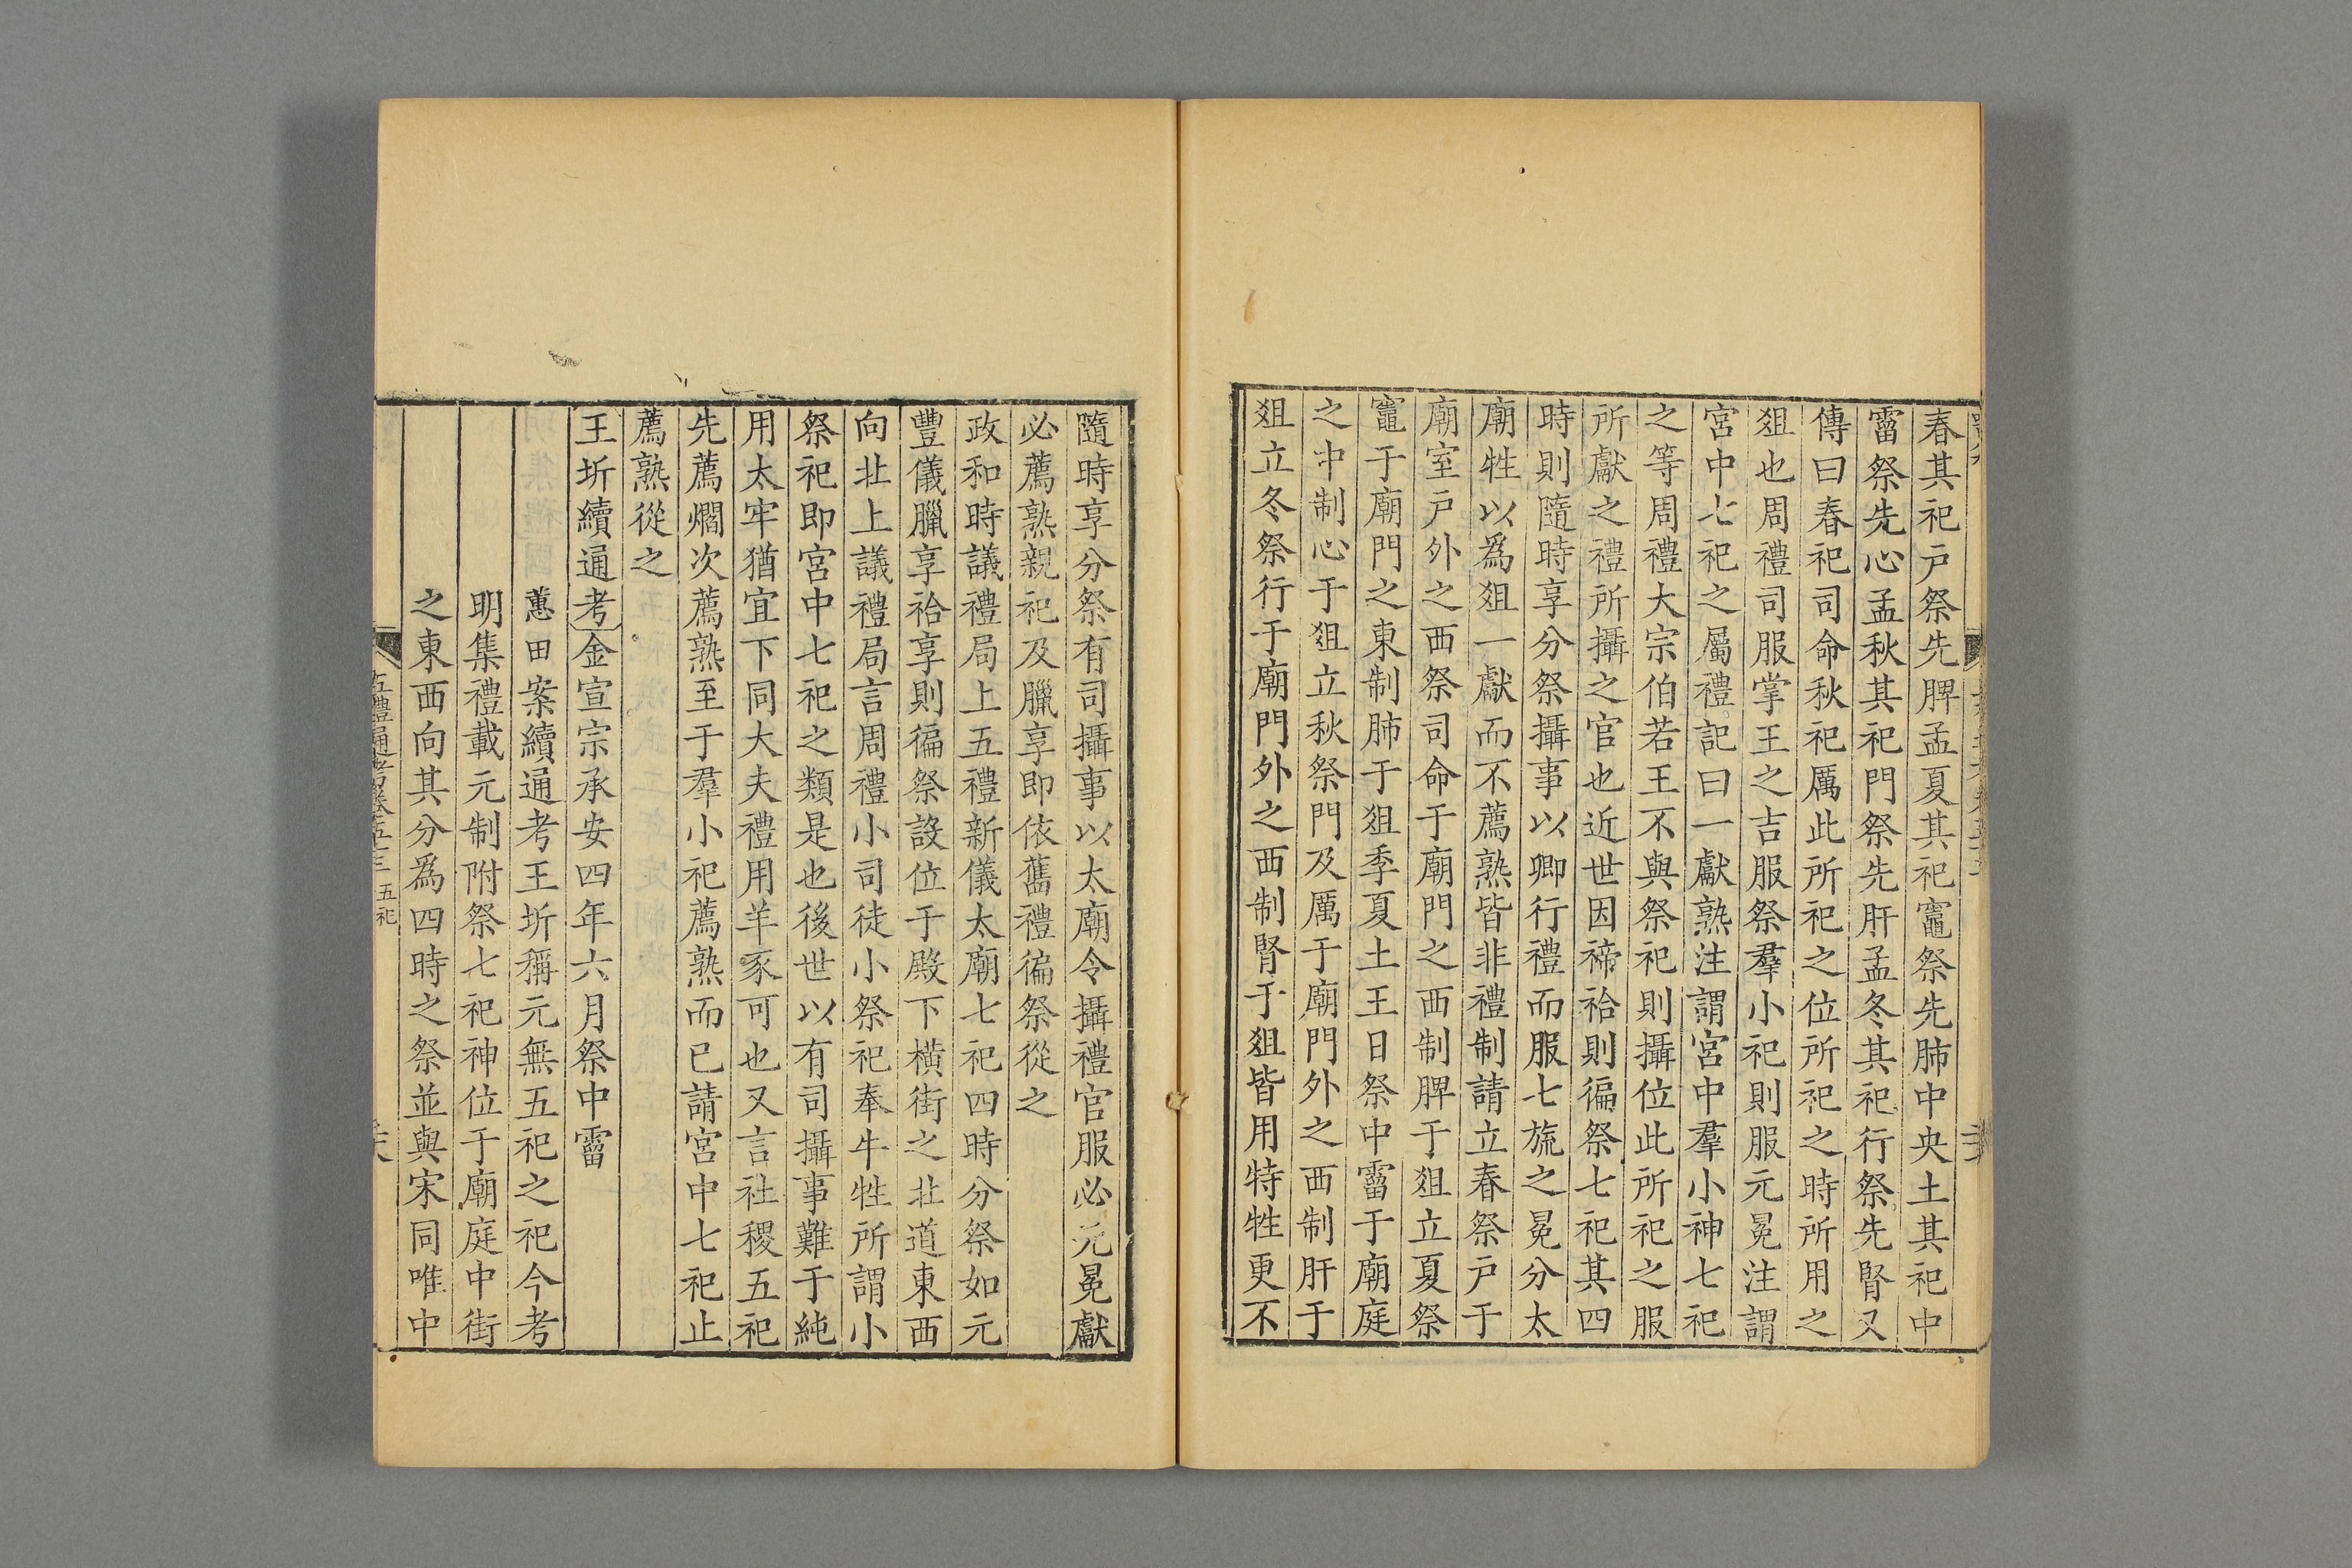 春其祀戸祭先脾孟夏其祀竈祭先肺中央土其祀中
霤祭先心孟秋其祀門祭先肝孟冬其祀行祭先腎又
傳曰春祀司命秋祀厲此所祀之位所祀之時所用之
俎也周禮司服掌王之吉服祭羣小祀則服元冕注謂
宮中七祀之屬禮記曰一獻熟注謂宮中羣小神七祀
之等周禮大宗伯若王不與祭祀則攝位此所祀之服
所獻之禮所攝之官也近世因禘祫則徧祭七祀其四
時則隨時享分祭攝事以卿行禮而服七旒之冕分太
廟牲以爲俎一獻而不薦熟皆非禮制請立春祭戸于
廟室戸外之西祭司命于廟門之西制脾于俎立夏祭
竈于廟門之東制肺于俎季夏土王日祭中霤于廟庭
之中制心于俎立秋祭門及厲于廟門外之西制肝于
俎立冬祭行于廟門外之西制腎于俎皆用特牲更不
隨時享分祭有司攝事以太廟令攝禮官服必元冕獻
必薦熟親祀及臘享即依舊禮徧祭從之
政和時議禮局上五禮新儀太廟七祀四時分祭如元
豐儀臘享祫享則徧祭設位于殿下橫街之北道東西
向北上議禮局言周禮小司徒小祭祀奉牛牲所謂小
祭祀即宮中七祀之類是也後世以有司攝事難于純
用太牢猶宜下同大夫禮用羊豕可也又言社稷五祀
先薦爓次薦熟至于羣小祀薦熟而已請宮中七祀止
薦熟從之
王圻續通考金宣宗承安四年六月祭中霤
蕙田案續通考王圻稱元無五祀之祀今考
明集禮載元制附祭七祀神位于廟庭中街
之東西向其分爲四時之祭並與宋同唯中
五禮通考卷五十三 五祀